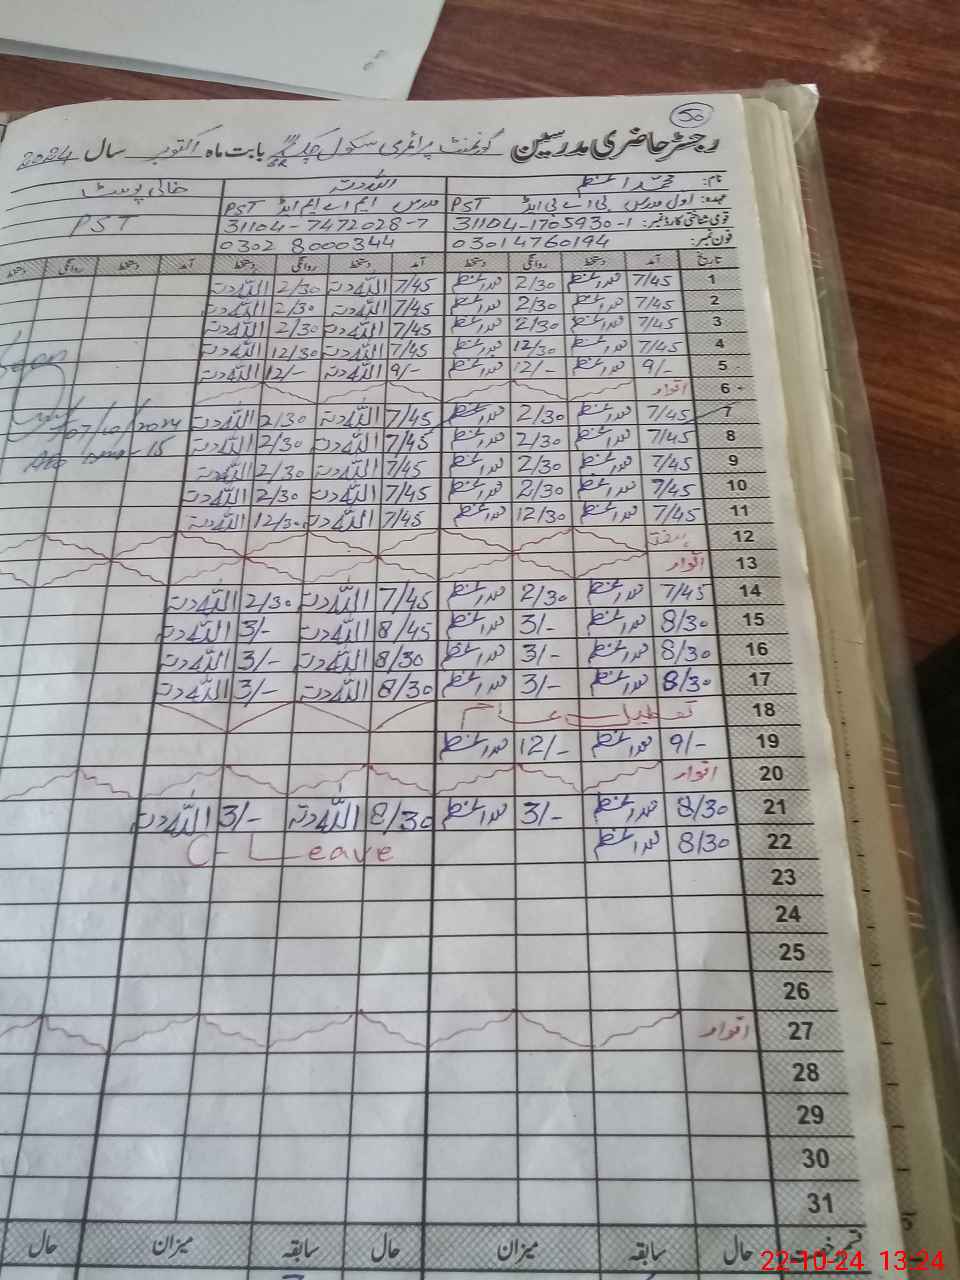 50
رجسٹر حاضری مدرسین گورنمنٹ پرائمری سکول بابت ماہ اکتوبر سال 2024
نام: محمد اعظم اللہ دتہ خالی پوسٹ
عہدہ: اول مدرس بی اے بی ایڈ PST مدرس ایم اے ایم ایڈ PST PST
قومی شناختی کارڈ نمبر: 31104-1705930-1 31104-7472028-7
فون نمبر: 03014760194 0302 8000344
تاریخ آمد دستخط روانگی دستخط آمد دستخط روانگی دستخط آمد دستخط روانگی دستخط
1 7/45 محمد اعظم 2/30 محمد اعظم 7/45 اللہ دتہ 2/30 اللہ دتہ
2 7/45 محمد اعظم 2/30 محمد اعظم 7/45 اللہ دتہ 2/30 اللہ دتہ
3 7/45 محمد اعظم 2/30 محمد اعظم 7/45 اللہ دتہ 2/30 اللہ دتہ
4 7/45 محمد اعظم 12/30 محمد اعظم 7/45 اللہ دتہ 12/30 اللہ دتہ
5 9/- محمد اعظم 12/- محمد اعظم 9/- اللہ دتہ 12/- اللہ دتہ
6 اتوار
7 7/45 محمد اعظم 2/30 محمد اعظم 7/45 اللہ دتہ 2/30 اللہ دتہ 07/10/2024
8 7/45 محمد اعظم 2/30 محمد اعظم 7/45 اللہ دتہ 2/30 اللہ دتہ
9 7/45 محمد اعظم 2/30 محمد اعظم 7/45 اللہ دتہ 2/30 اللہ دتہ
10 7/45 محمد اعظم 2/30 محمد اعظم 7/45 اللہ دتہ 2/30 اللہ دتہ
11 7/45 محمد اعظم 12/30 محمد اعظم 7/45 اللہ دتہ 12/30 اللہ دتہ
12 ہفتہ
13 اتوار
14 7/45 محمد اعظم 2/30 محمد اعظم 7/45 اللہ دتہ 2/30 اللہ دتہ
15 8/30 محمد اعظم 3/- محمد اعظم 8/45 اللہ دتہ 3/- اللہ دتہ
16 8/30 محمد اعظم 3/- محمد اعظم 8/30 اللہ دتہ 3/- اللہ دتہ
17 8/30 محمد اعظم 3/- محمد اعظم 8/30 اللہ دتہ 3/- اللہ دتہ
18 تعطیل عام
19 9/- محمد اعظم 12/- محمد اعظم
20 اتوار
21 8/30 محمد اعظم 3/- محمد اعظم 8/30 اللہ دتہ 3/- اللہ دتہ
22 8/30 محمد اعظم C-Leave
23
24
25
26
27 اتوار
28
29
30
31
حال سابقہ میزان حال سابقہ میزان حال
22-10-24 13:24